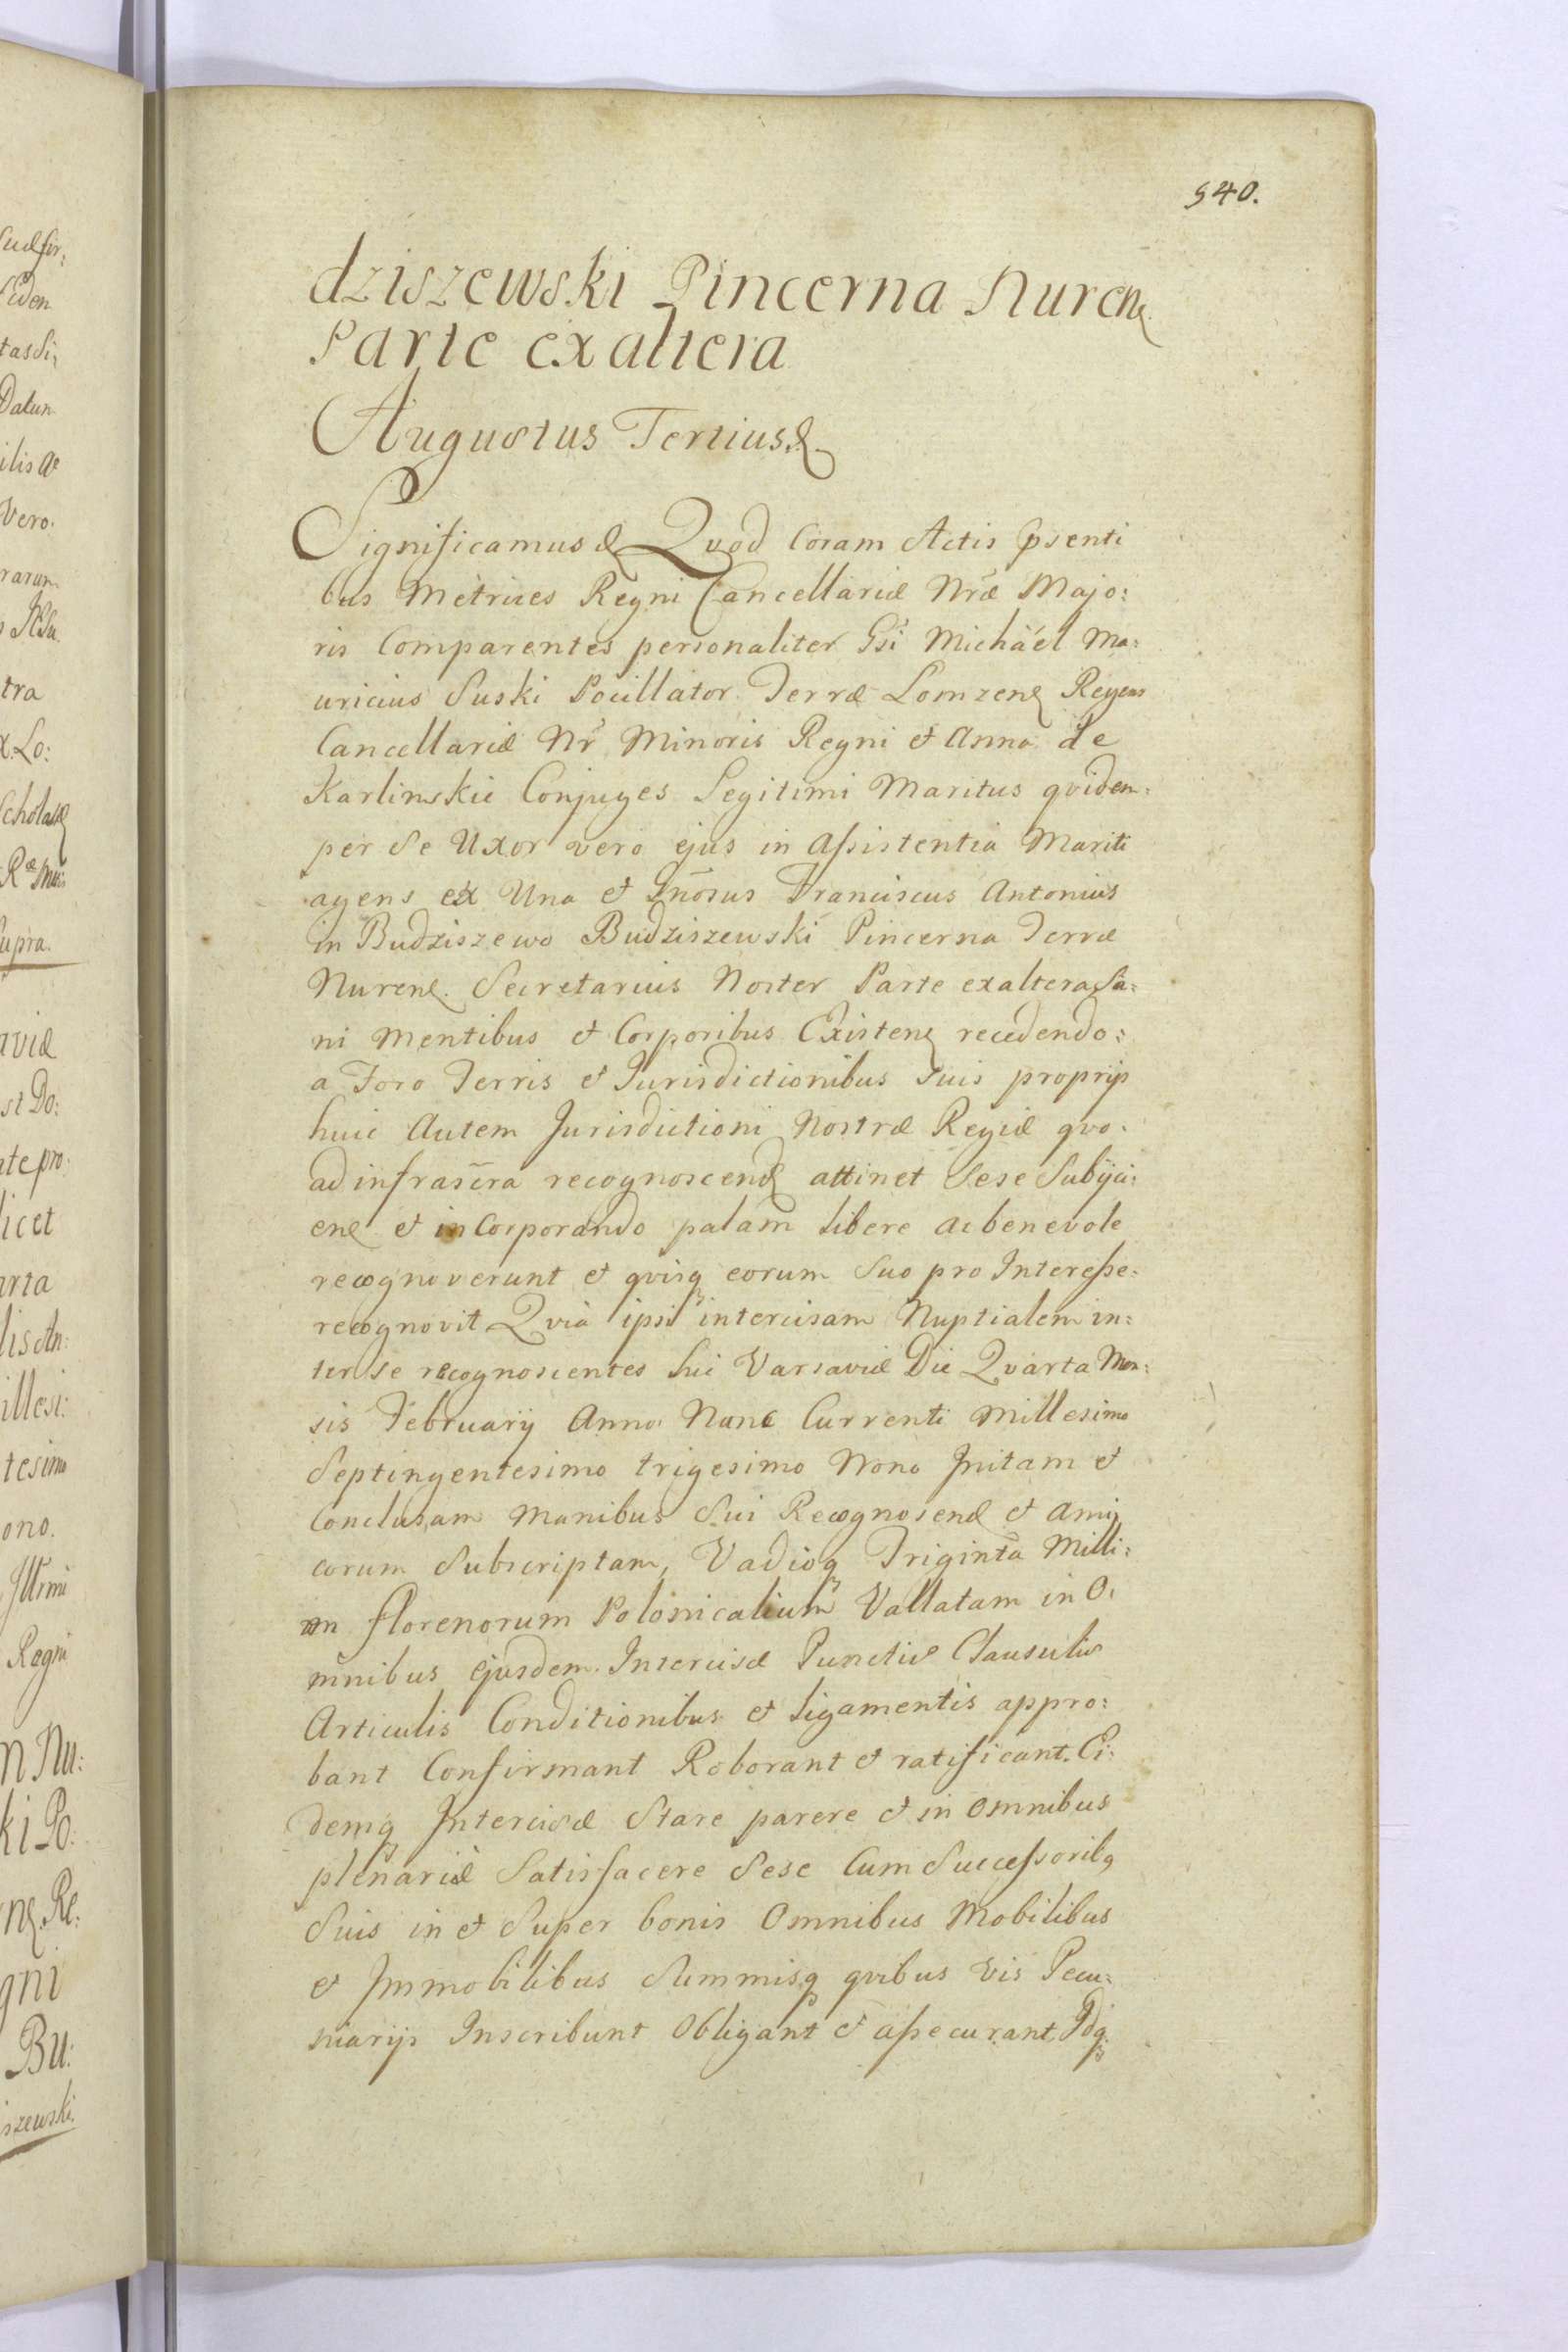 540.
dziszewski Pincerna Nuren
Parte ex altera
Augustus Tertius &
Significamus & Qvod Coram Actis psenti
bus Metrices Regni Cancellariæ Nræ Majo:
ris Comparentes personaliter Gsi Michäel Ma:
uricius Suski Pocillator Terræ Lomzen Regens
Cancellariæ Nr Minoris Regni et Anna de
Karlinskie Conjuges Legitimi Maritus qvidem
per se Uxor vero ejus in Assistentia Mariti
agens ex Una et Gnosus Franciscus Antonius
in Budziszewo Budziszewski Pincerna Terræ
Nuren. Secretarius Noster Parte ex altera Sa:
ni Mentibus et Corporibus Existen recedendo:
a Foro Terris et Jurisdictionibus suis proprijs
huic Autem Jurisdictioni Nostræ Regiæ qvo:
ad infrascra recognoscend attinet sese Subijci:
en et incorporando palam libere ac benevole
recognoverunt et qvisq eorum Suo pro Interesse
recognovit Qvia ipsi intercisam Nuptialem in:
ter se recognoscentes hic Varsaviæ Die Qvarta Men:
sis February Anno Nunc Currenti Millesimo
Septingentesimo trigesimo Nono Initam et
Conclusam Manibus Sui Recognoscend et Ami
corum Subscriptam, Vadioq Triginta Milli:
um florenorum Polonicalium Vallatam in O:
mnibus Ejusdem Intercisæ Punctis Clausulis
Articulis Conditionibus et ligamentis appro:
bant Confirmant Roborant et ratificant. Ei:
demq Intercisæ Stare parere et in Omnibus
plenariè Satisfacere Sese Cum Successorib
Suis in et Super bonis Omnibus Mobilibus
et Immobilibus Summisq qvibus vis Pecu:
niarijs Inscribunt Obligant et assecurant Idq